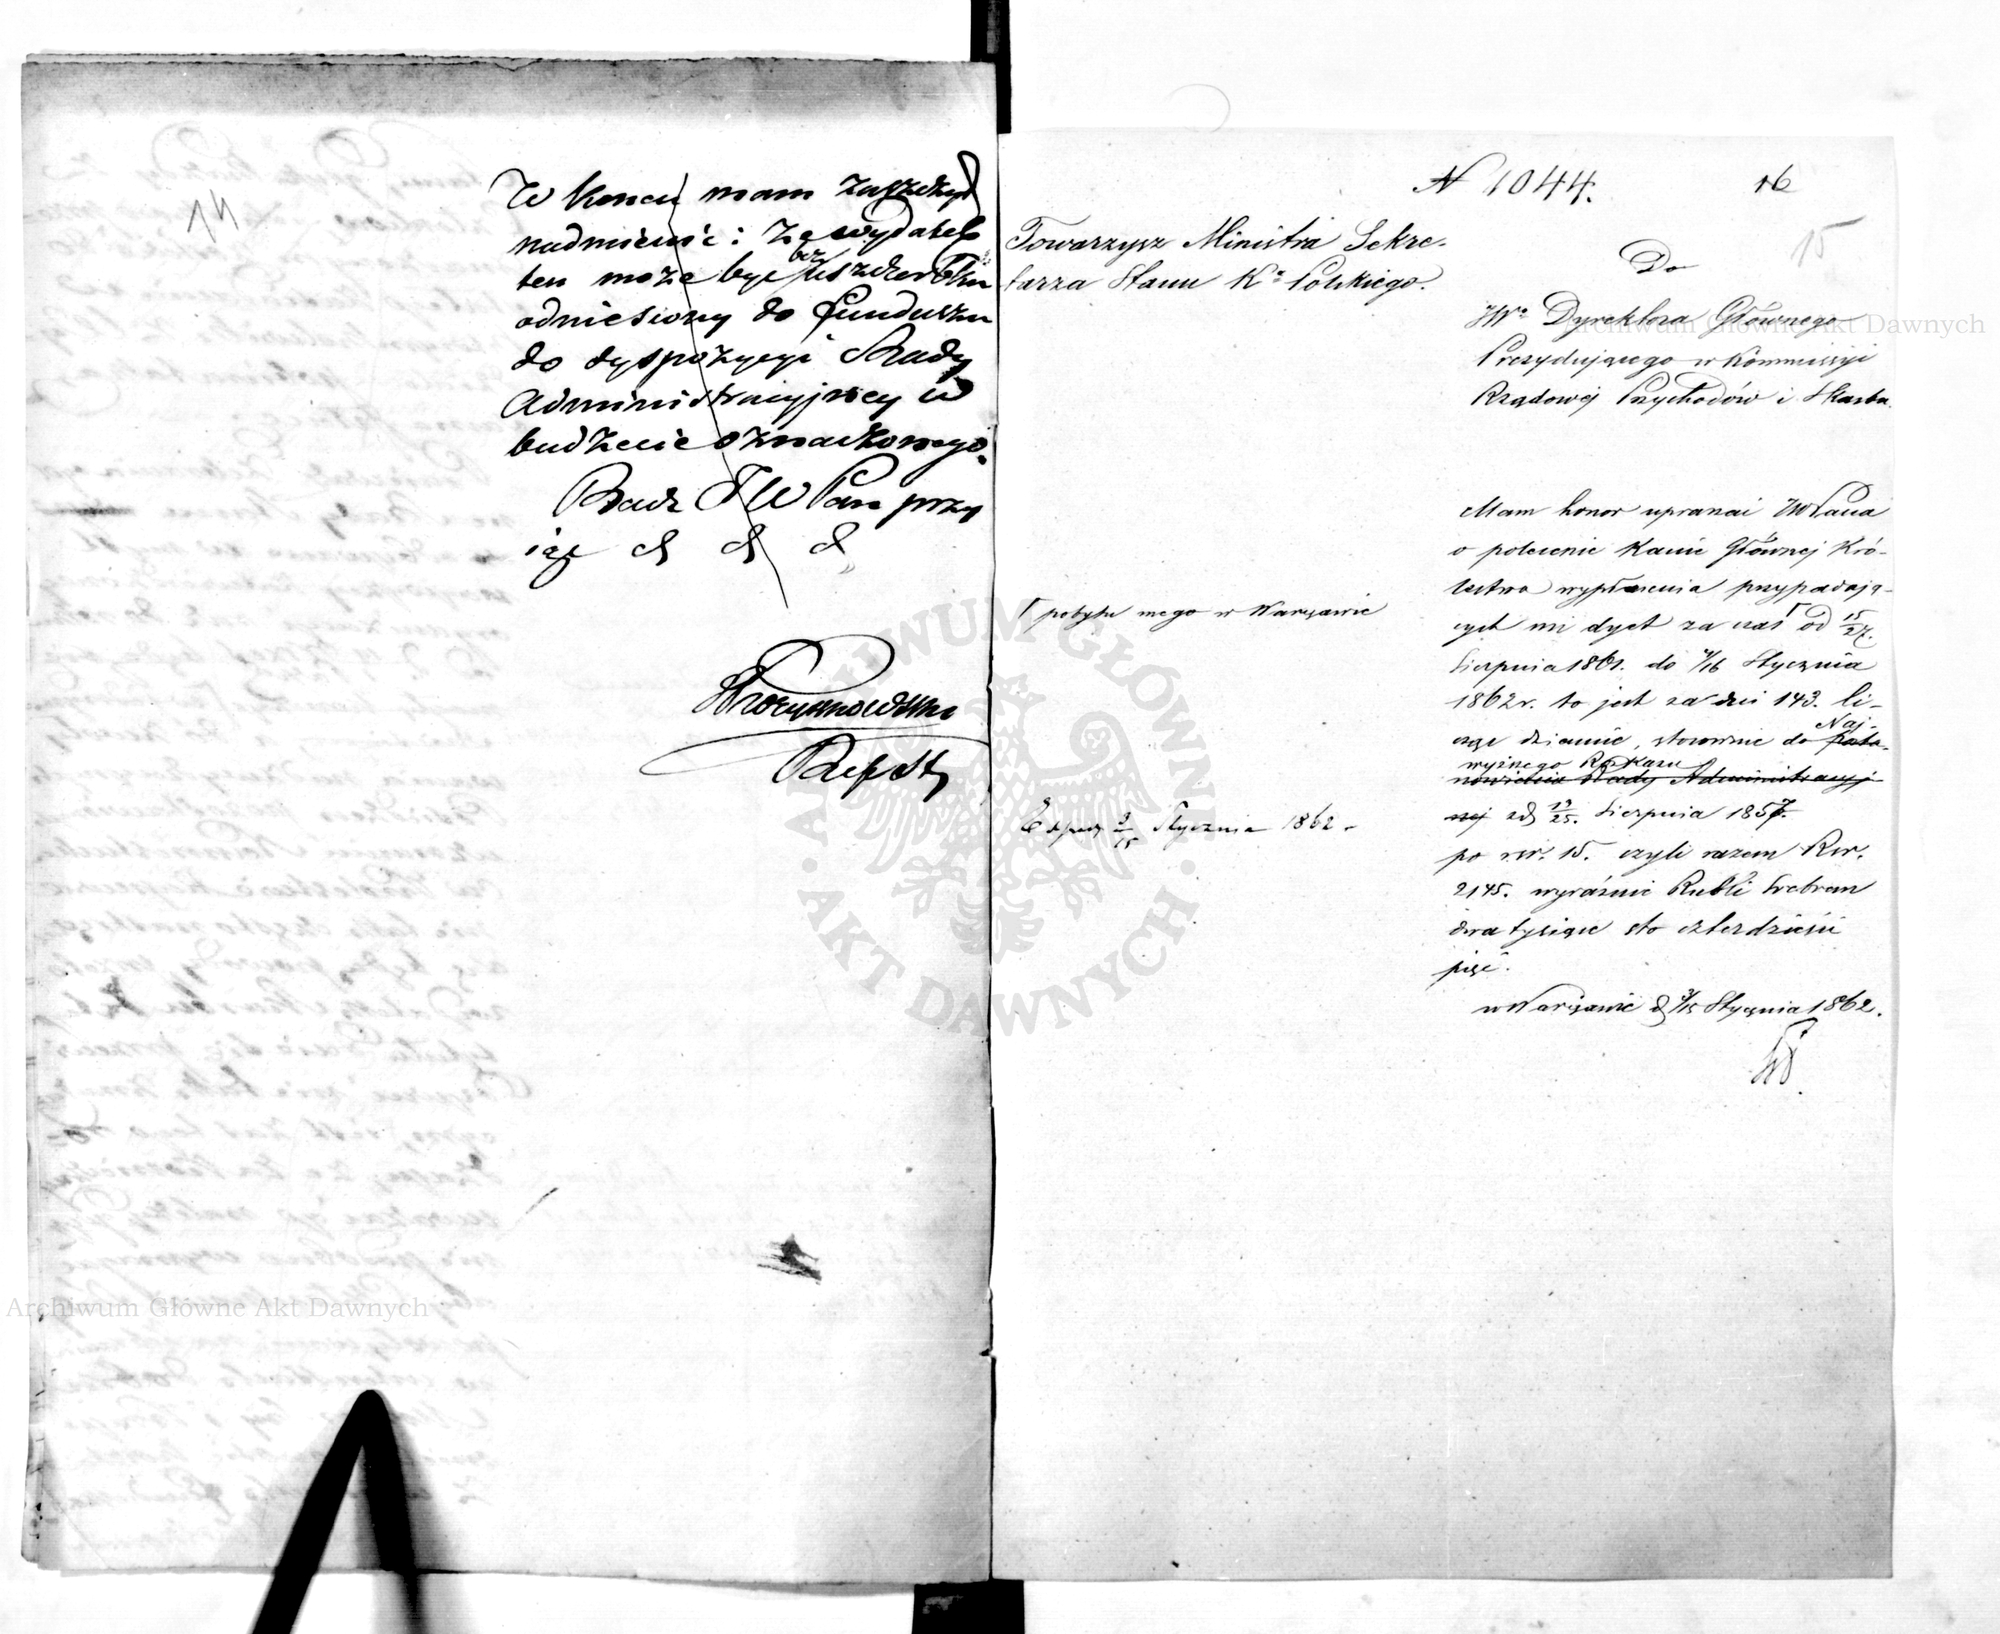 14
W końcu mam zaszczyt
nadmienić: że wydatek
ten może być bez uszczerbku
odniesiony do funduszu
do dyspozycyi Rady
Administracyjnej w
budżecie oznaczonego.
Racz JW Pan przy
jąć & & &
Ref St
N 1044.
16
15
Towarzysz Ministra Sekre-
tarza Stanu Kr. Polskiego.
Do
JWo Dyrektora Głównego
Prezydującego w Kommissyi
Rządowej Przychodów i Skarbu.
Mam honor upraszać JWPana
o polecenie Kassie Głównej Kró-
lestwa wypłacenia przypadają-
cych mi dyet za czas Γ od 15/27
Γ pobytu mego w Warszawie
Sierpnia 1861. do 4/16 Stycznia
1862 r. to jest za dni 143. li-
cząc dziennie, stosownie do posta- Naj-
wyższego Rozkazu
nowienia Rady Administracyj-
nej z d. 13/25. Sierpnia 1857.
po rsr. 15. czyli razem Rsr.
2145. wyraźnie Rubli Srebrem
dwa tysiące sto czterdzieści
pięć.
w Warszawie d. 3/15 Stycznia 1862.
Exped. 3/15 Stycznia 1862 r.
ARCHIWUM GŁÓWNE
AKT DAWNYCH
Archiwum Główne Akt Dawnych
Archiwum Główne Akt Dawnych